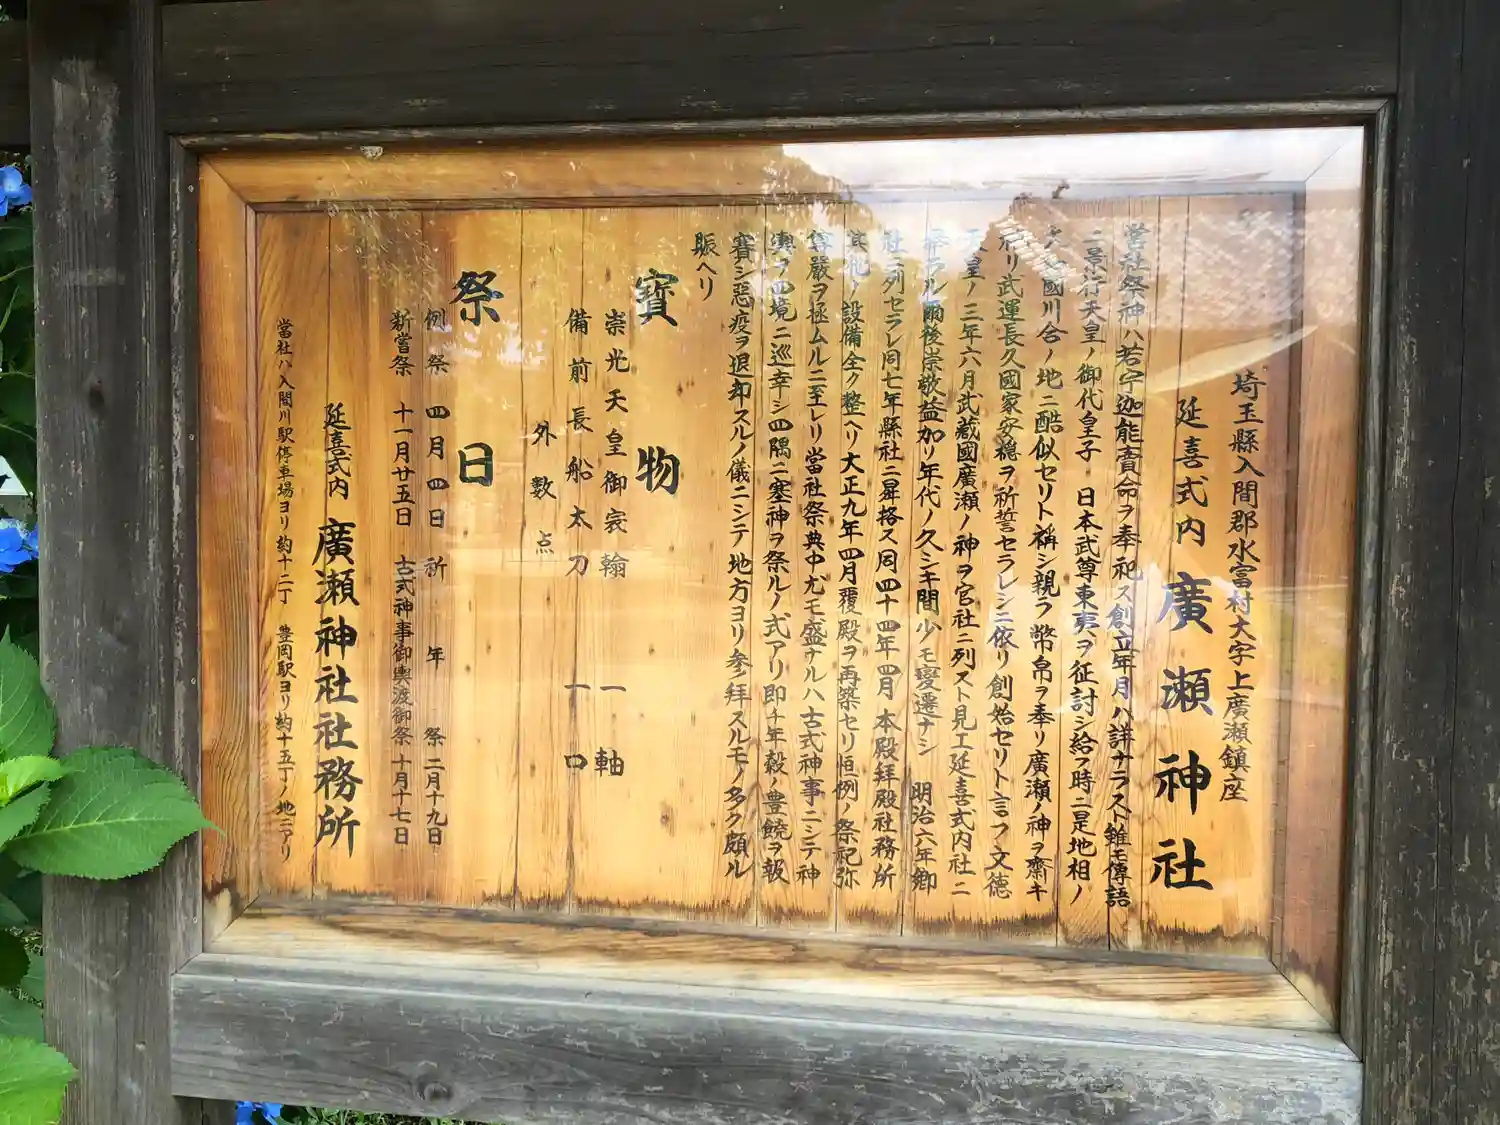 埼玉縣入間郡水富村大字上廣瀬鎮座
延喜式内 廣瀬神社
當社祭神ハ若宇迦能賣命ヲ奉祀ス創立年月ハ詳ナラスト雖モ傳語
ニ景行天皇ノ御代皇子 日本武尊東夷ヲ征討シ給フ時ニ是地相ノ
國川合ノ地ニ酷似セリト稱シ親ラ幣帛ヲ奉リ廣瀬ノ神ヲ齋キ
リ武運長久國家安穏ヲ祈誓セラレシニ依リ創始セリト言フ文徳
天皇ノ三年六月武蔵國廣瀬ノ神ヲ官社ニ列スト見工延喜式内社ニ
ラル爾後崇敬益加リ年代ノ久シキ間少モ變遷ナシ 明治六年郷
社ニ列セラレ同七年縣社ニ昇格ス同四十四年四月本殿拝殿社務所
其他ノ設備全ク整ヘリ大正九年四月覆殿ヲ再築セリ恒例ノ祭祀弥
尊嚴ヲ極ムルニ至レリ當社祭典中尤モ盛ナルハ古式神事ニシテ神
輿ヲ四境ニ巡幸シ四隅ニ塞神ヲ祭ルノ式アリ即チ年穀ノ豊饒ヲ報
賽シ惡疫ヲ退却スルノ儀ニシテ地方ヨリ参拜スルモノ多ク頗ル
賑ヘリ
寳物
崇光天皇御宸翰 一軸
備前長船太刀 一口
外數点
祭日
例祭 四月四日 祈年祭 二月十九日
新嘗祭 十一月廿五日 古式神事御輿渡御祭 十月十七日
延喜式内 廣瀬神社社務所
當社ハ入間川駅停車場ヨリ約十二丁 豊岡駅ヨリ約十五丁ノ地ニアリ